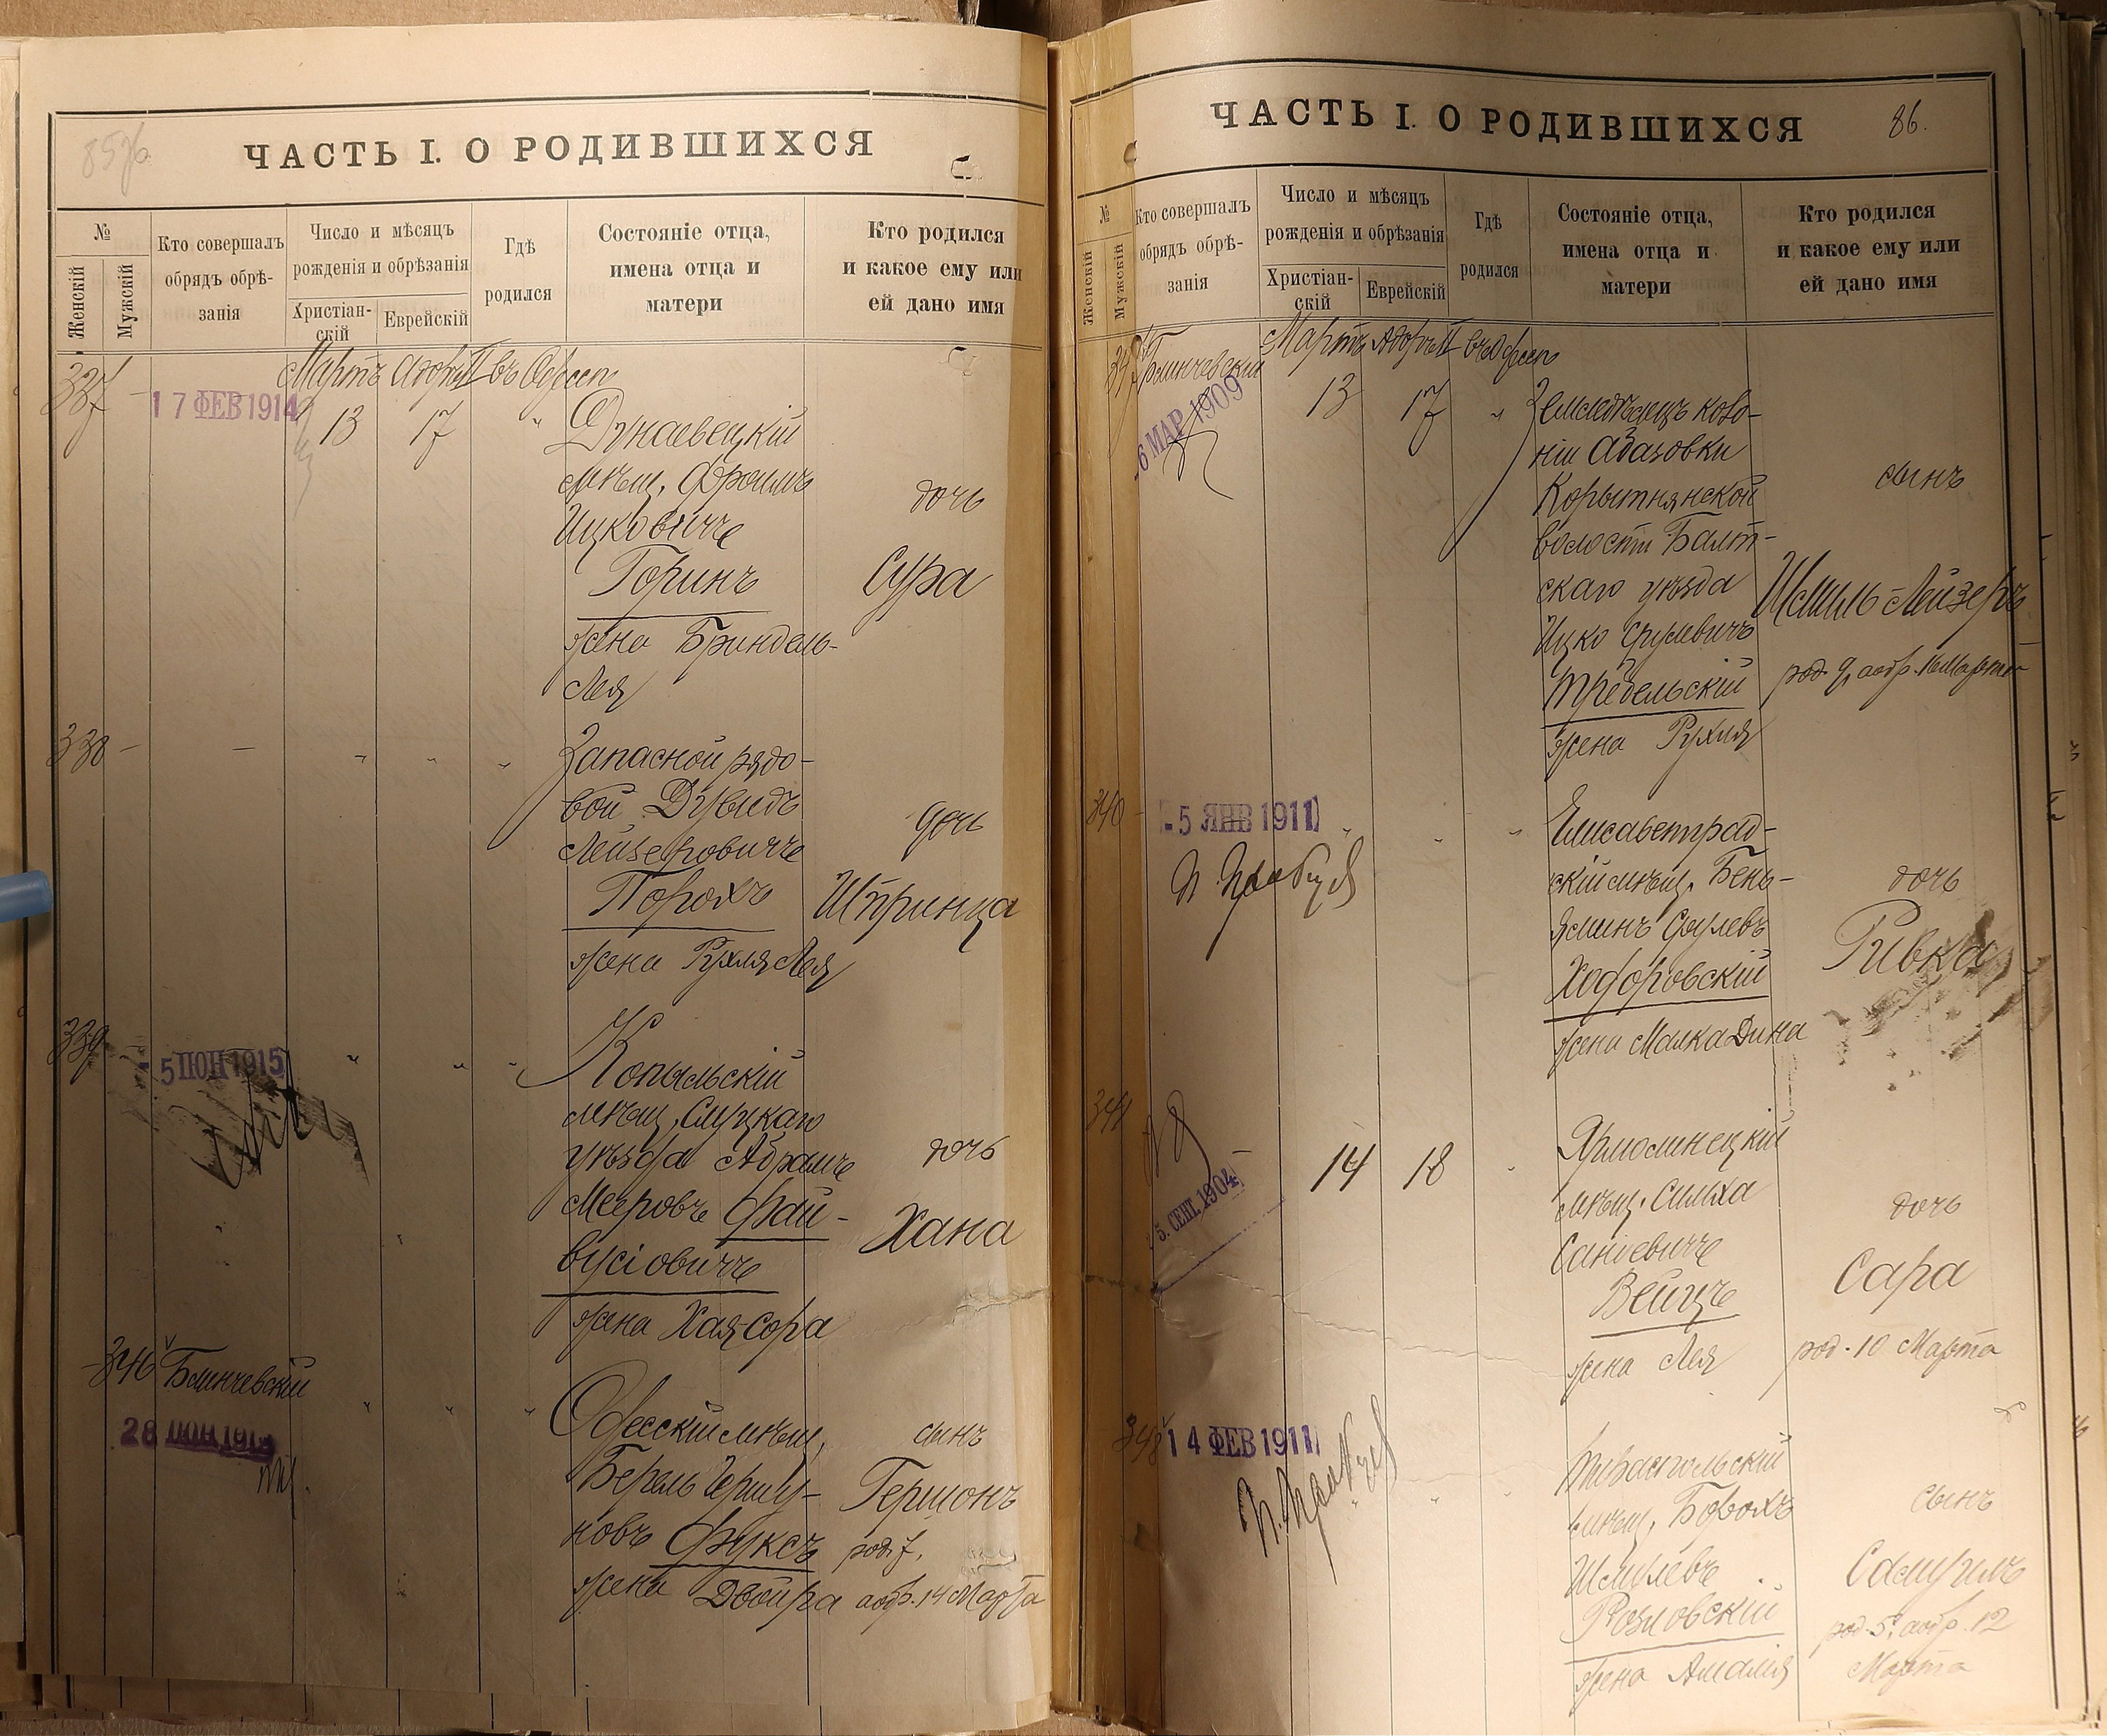 ЧАСТЬ I. О РОДИВШИХСЯ
№
Женскій
Мужскій
Кто совершалъ
обрядъ обрѣ-
занія
Число и мѣсяцъ
рожденія и обрѣзанія
Христіан-
скій
Еврейскій
Гдѣ
родился
Состояніе отца,
имена отца и
матери
Кто родился
и какое ему или
ей дано имя
Мартъ Адоръ II въ Одессѣ
337
17 ФЕВ 1914
13
17
Дунаевецкій
мѣщ. Фроимъ
Ицковичъ
Горинъ
жена Бриндель-
Лея
дочь
Сура
338
Запасной рядо-
вой Дувидъ
Лейзеровичъ
Порохъ
жена Рухля Лея
дочь
Шпринца
339
5 ІЮН 1915
Копыльскій
мѣщ. Слуцкаго
уѣзда Абрамъ
Мееровъ Фай-
вусіовичъ
жена Хая-Сора
дочь
Хана
346 Блинчевскій
Одесскій мѣщ.
Берель Гершу-
новъ Фуксъ
жена Двойра
сынъ
Гершонъ
род. 7,
аобр. 14 Марта
ЧАСТЬ I. О РОДИВШИХСЯ
86.
№
Женскій
Мужскій
Кто совершалъ
обрядъ обрѣ-
занія
Число и мѣсяцъ
рожденія и обрѣзанія
Христіан-
скій
Еврейскій
Гдѣ
родился
Состояніе отца,
имена отца и
матери
Кто родился
и какое ему или
ей дано имя
Мартъ Адоръ II въ Одессѣ
Блинчевскій
6 МАР 1909
13
17
Земледѣлецъ коло-
ніи Абазовки
Корытнянской
волости Балт-
скаго уѣзда
Ицко Срулевичъ
жена Рухля
сынъ
Шмиль-Лейзеръ
род. 9, аобр. 16 Марта
340
-5 ЯНВ 1911
Елисаветград-
скій мѣщ. Бень-
яминъ Срулевъ
Ходоровскій
жена Малка Дина
дочь
Ривка
341
5. СЕНТ. 1904
14
18
Ярмолинецкій
мѣщ. Симха
Вейцъ
жена Лея
дочь
Сара
род. 10 Марта
348
14 ФЕВ 1911
Тираспольскій
мѣщ. Борохъ
Шмулевъ
Розловскій
жена Амалія
сынъ
Самуилъ
род. 5, аобр. 12
Марта